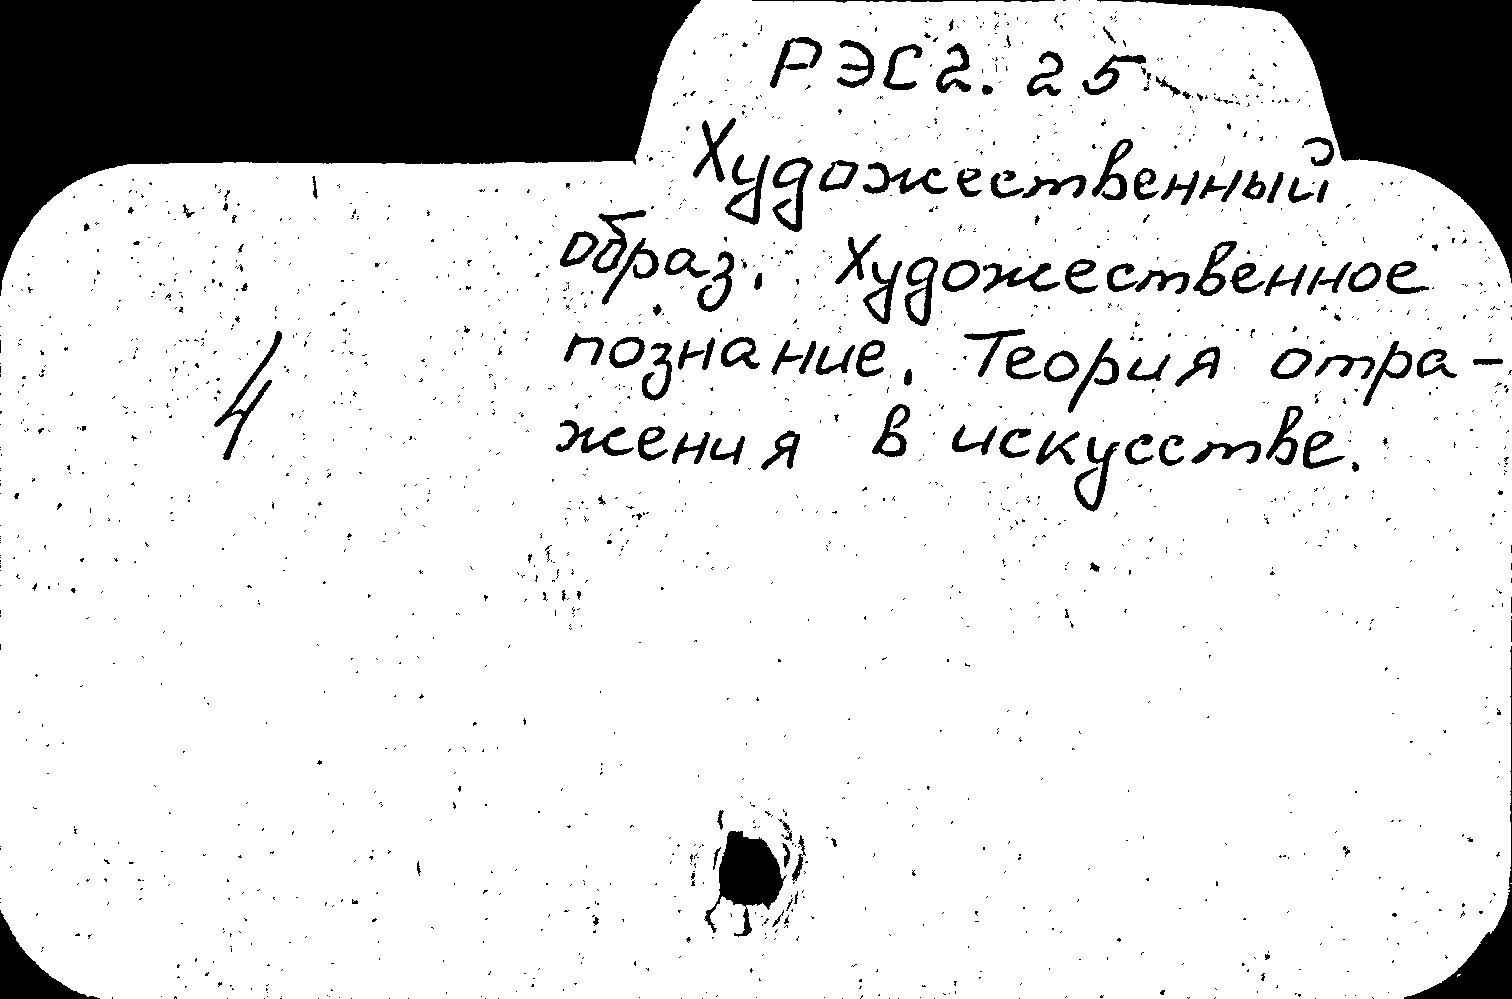 РЭС 2. 25
Художественный
образ. Художественное
познание. Теория отра-
4
жения в искусстве.